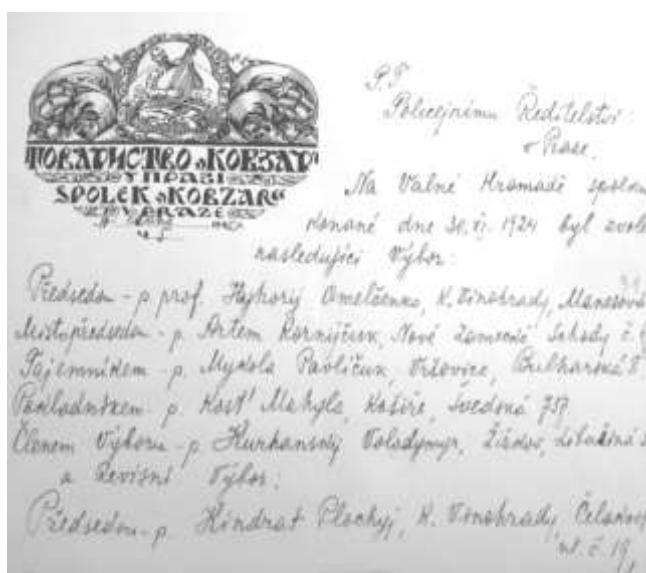 ТОВАРИСТВО „КОБЗАР“
У ПРАЗІ
SPOLEK „KOBZAR“
V PRAZE
P.T.
Policejnímu Ředitelství
v Praze.
Na Valné Hromadě spolku
konané dne 30.VI. 1924 byl zvole
nasledující Výbor:
Předsedou - p. prof. Hryhorij Omelčenko, K. Vinohrady, Manesova
Místopředsedou - p. Artem Kornijčuk, Nové Zamecké Schody č.
Tajemníkem - p. Mykola Pavlíčuk, Vršovice, Bulharská
Pokladníkem - p. Kost' Mahyla, Košíře, Švedská 757
Členem Výboru - p. Kurhanský Volodymyr, Žižkov,
a Revisní Výbor:
Předsedou - p. Kindrat Plochyj, K. Vinohrady,
ul. č. 19,